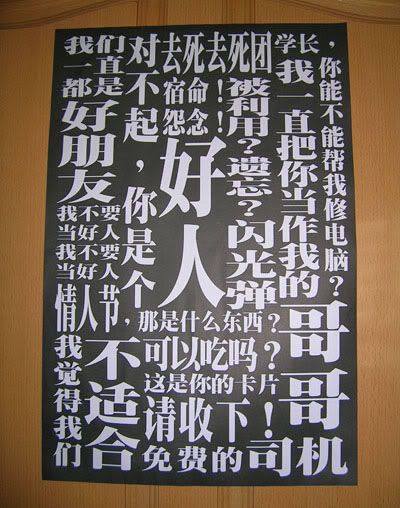 我们
一直
都是
好朋友
我不要
当好人
我不要
当好人
情人节,
那是什么东西?
可以吃吗?
我觉得我们
不适合
对不起,你是个
好人
去死去死团
宿命!
怨念!
被利用?遗忘?闪光弹
学长,
你能不能帮我修电脑?
我一直把你当作我的
哥哥
这是你的卡片
请收下!
免费的司机